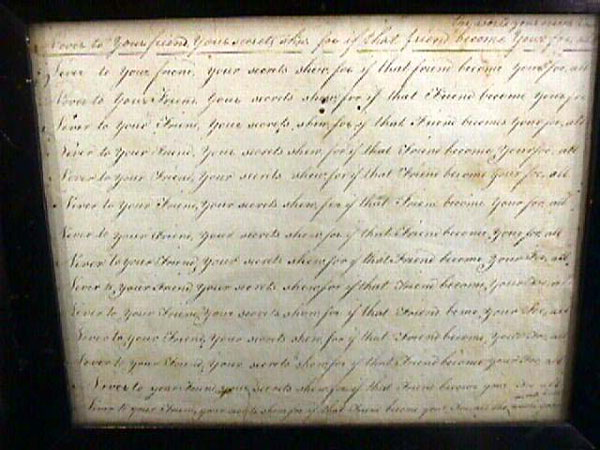 Never to Your friend, Your secrets shew for if that friend become Your foe, all
Never to Your friend, your secrets show, for if that friend become your foe, all
Never to Your Friend, Your secrets show, for if that Friend become your foe
Never to your Friend, Your secrets, shew, for if that Friend becomes Your foe, all
Never to Your Friend, Your secrets shew, for if that Friend become, Your foe, all
Never to Your Friend, Your secrets shew, for if that Friend become Your foe, all
Never to your Friend, Your secrets show, for if that Friend become your foe, all
Never to your Friend, Your secrets show, for if that Friend become, your foe, all
Never to your Friend, Your secrets show, for if that Friend become your Foe, all
Never to, Your Friend your secrets show, for if that Friend become, Your Foe, all
Never to, your Friend, Your secrets show, for if that Friend beme, your Foe, all
Never to, your Friend, Your secrets show, for if that Friend become, Your Foe, all
Never to, your Friend, your secrets show, for if that Friend become your Foe, all
Never to your Friend, your secrets show, for if that Friend become your Foe all
Never to your Friend, your secrets show, for if that Friend become your Foe, all the